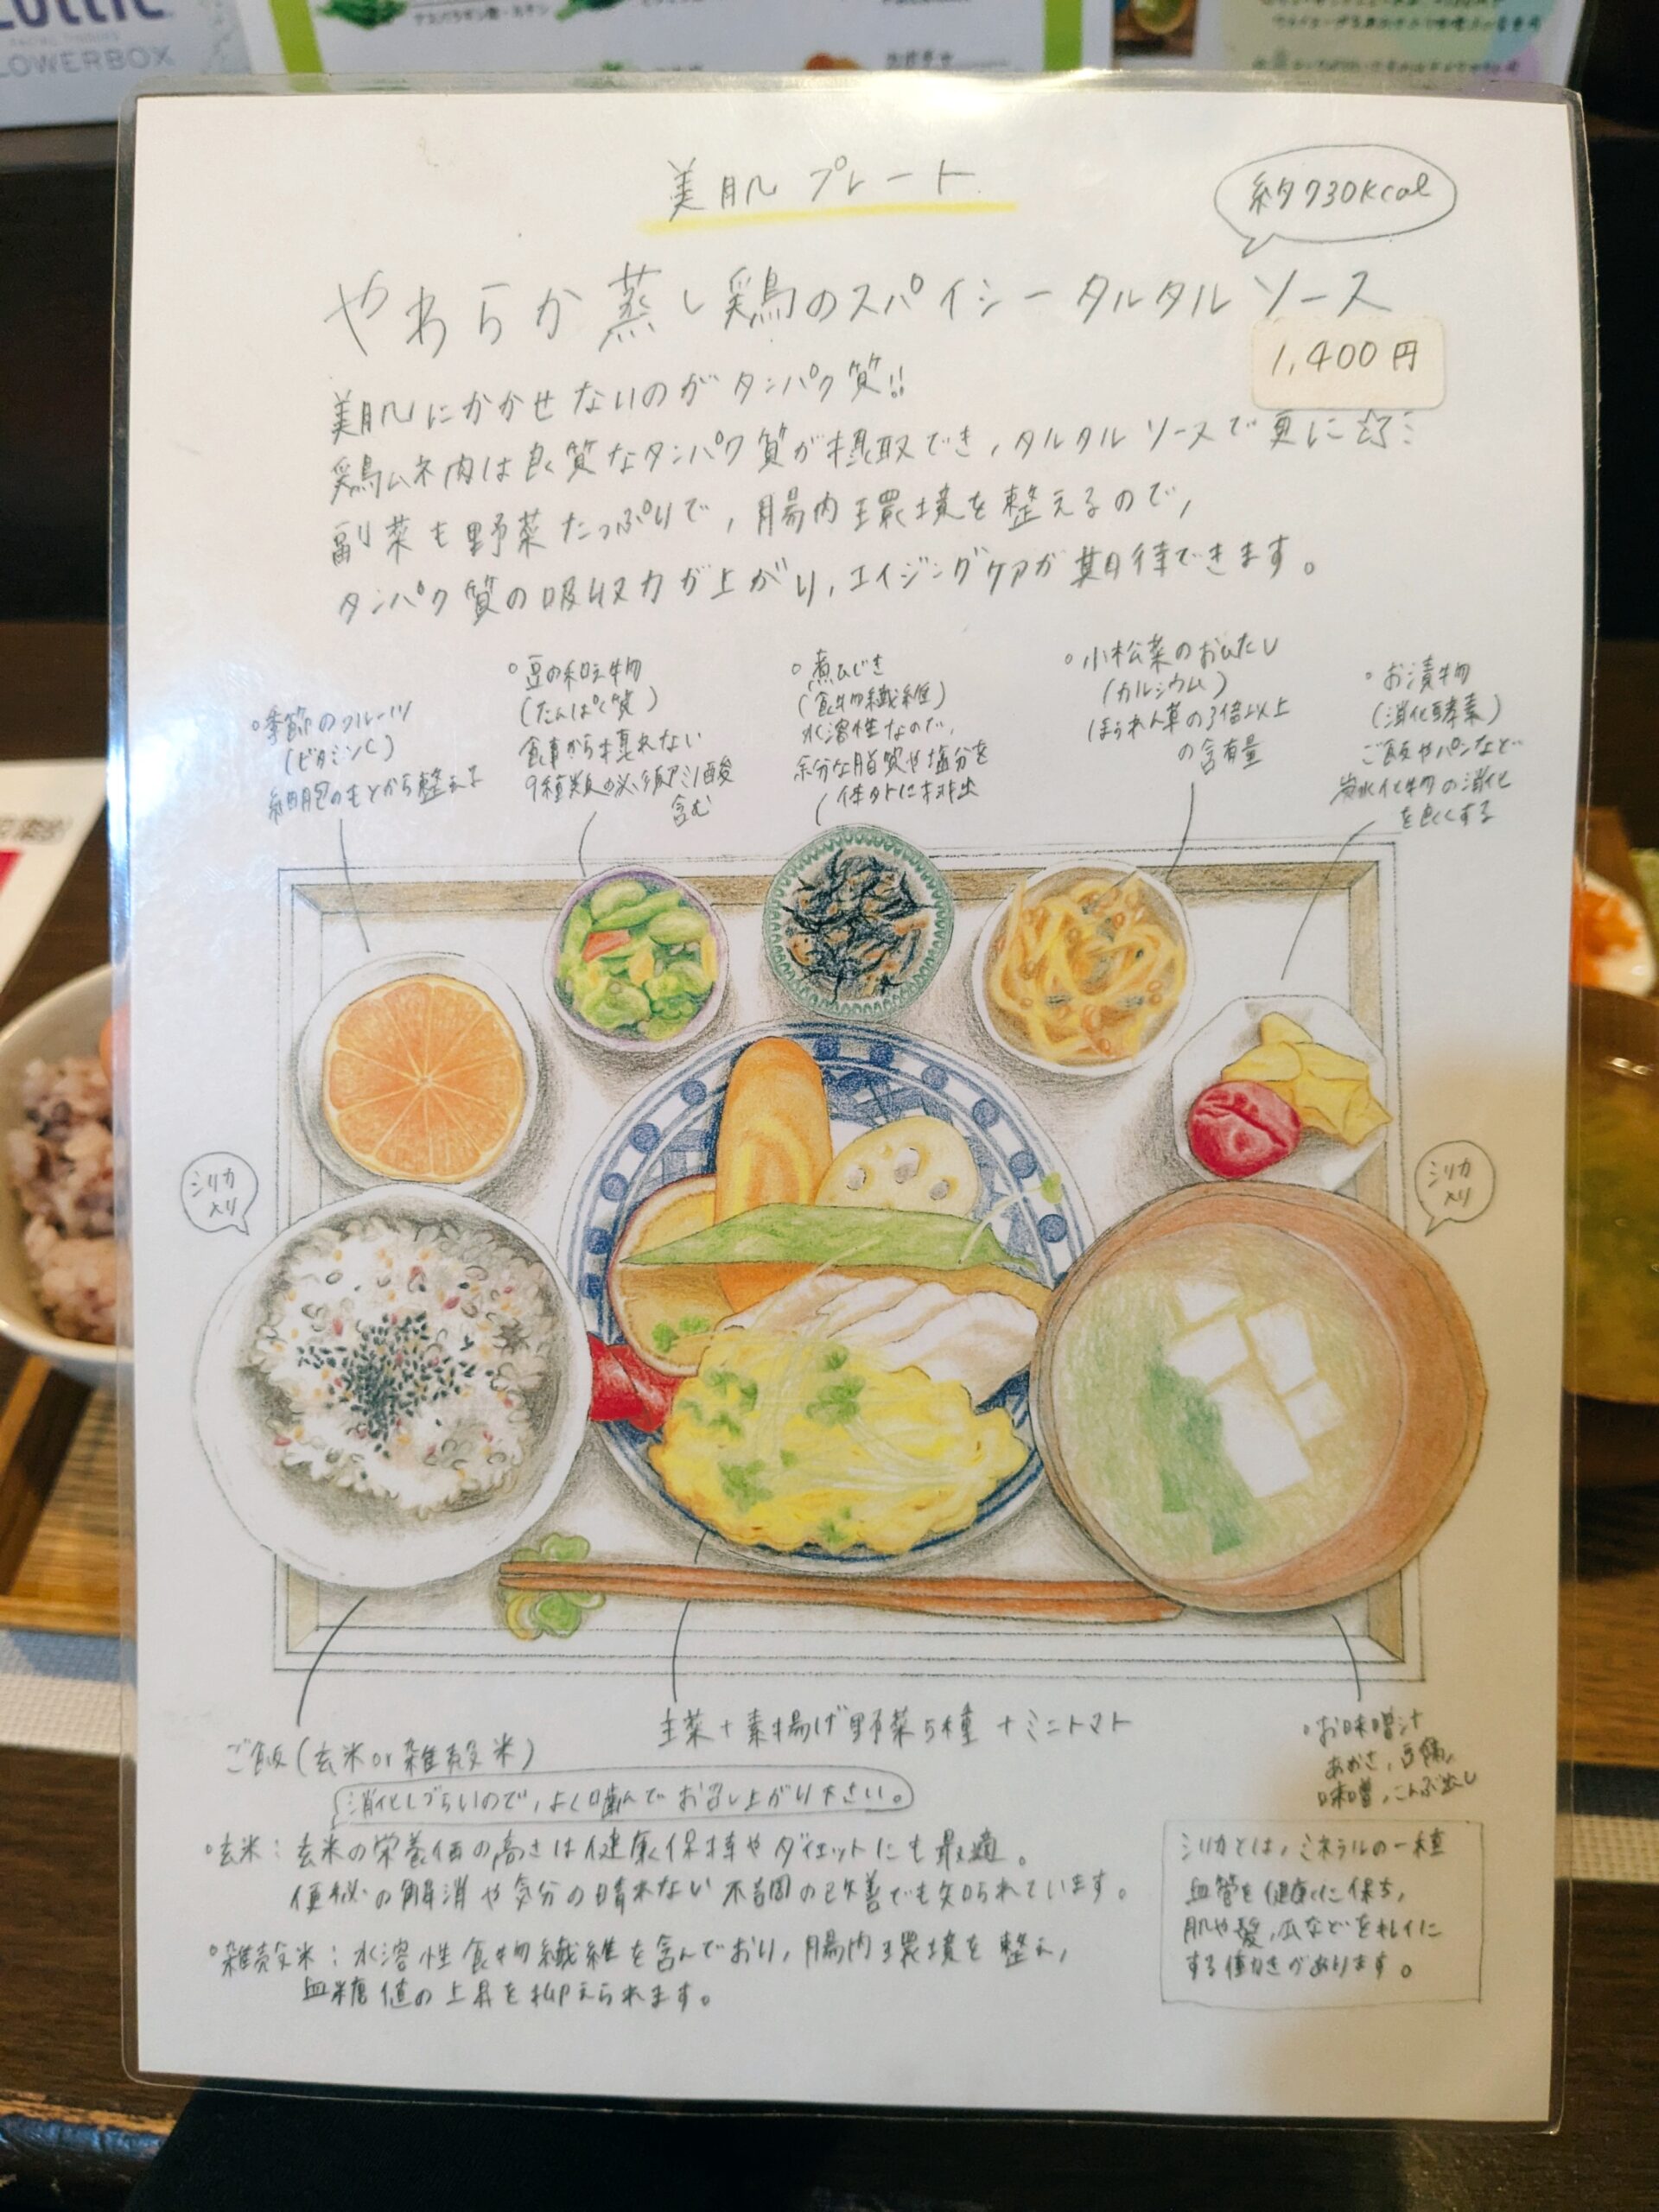 LOWERBOX
美肌プレート
約730kcal
やわらか蒸し鶏のスパイシータルタルソース
1,400円
美肌にかかせないのがタンパク質!!
鶏ムネ肉は良質なタンパク質が摂取でき,タルタルソースで更に
副菜も野菜たっぷりで,腸内環境を整えるので,
タンパク質の吸収力が上がり,エイジングケアが期待できます。
季節のフルーツ
(ビタミンC)
細胞のもとから整える
豆の和え物
(たんぱく質)
食事から摂れない
9種類の必須アミノ酸
含む
煮ひじき
(食物繊維)
水溶性なので,
余分な脂質や塩分を
体外に排出
小松菜のおひたし
(カルシウム)
ほうれん草の3倍以上
の含有量
お漬物
(消化酵素)
ご飯やパンなど
炭水化物の消化
を良くする
シリカ
入り
シリカ
入り
ご飯(玄米or雑穀米)
消化しづらいので,よく噛んでお召し上がり下さい。
主菜+素揚げ野菜5種+ミニトマト
お味噌汁
あおさ,豆腐,
味噌,こんぶ出し
玄米:玄米の栄養価の高さは健康保持やダイエットにも最適。
便秘の解消や気分の晴れない不調の改善でも知られています。
雑穀米:水溶性食物繊維を含んでおり,腸内環境を整え,
血糖値の上昇を抑えられます。
シリカとは,ミネラルの一種
血管を健康に保ち,
肌や髪,爪などをキレイに
する働きがあります。